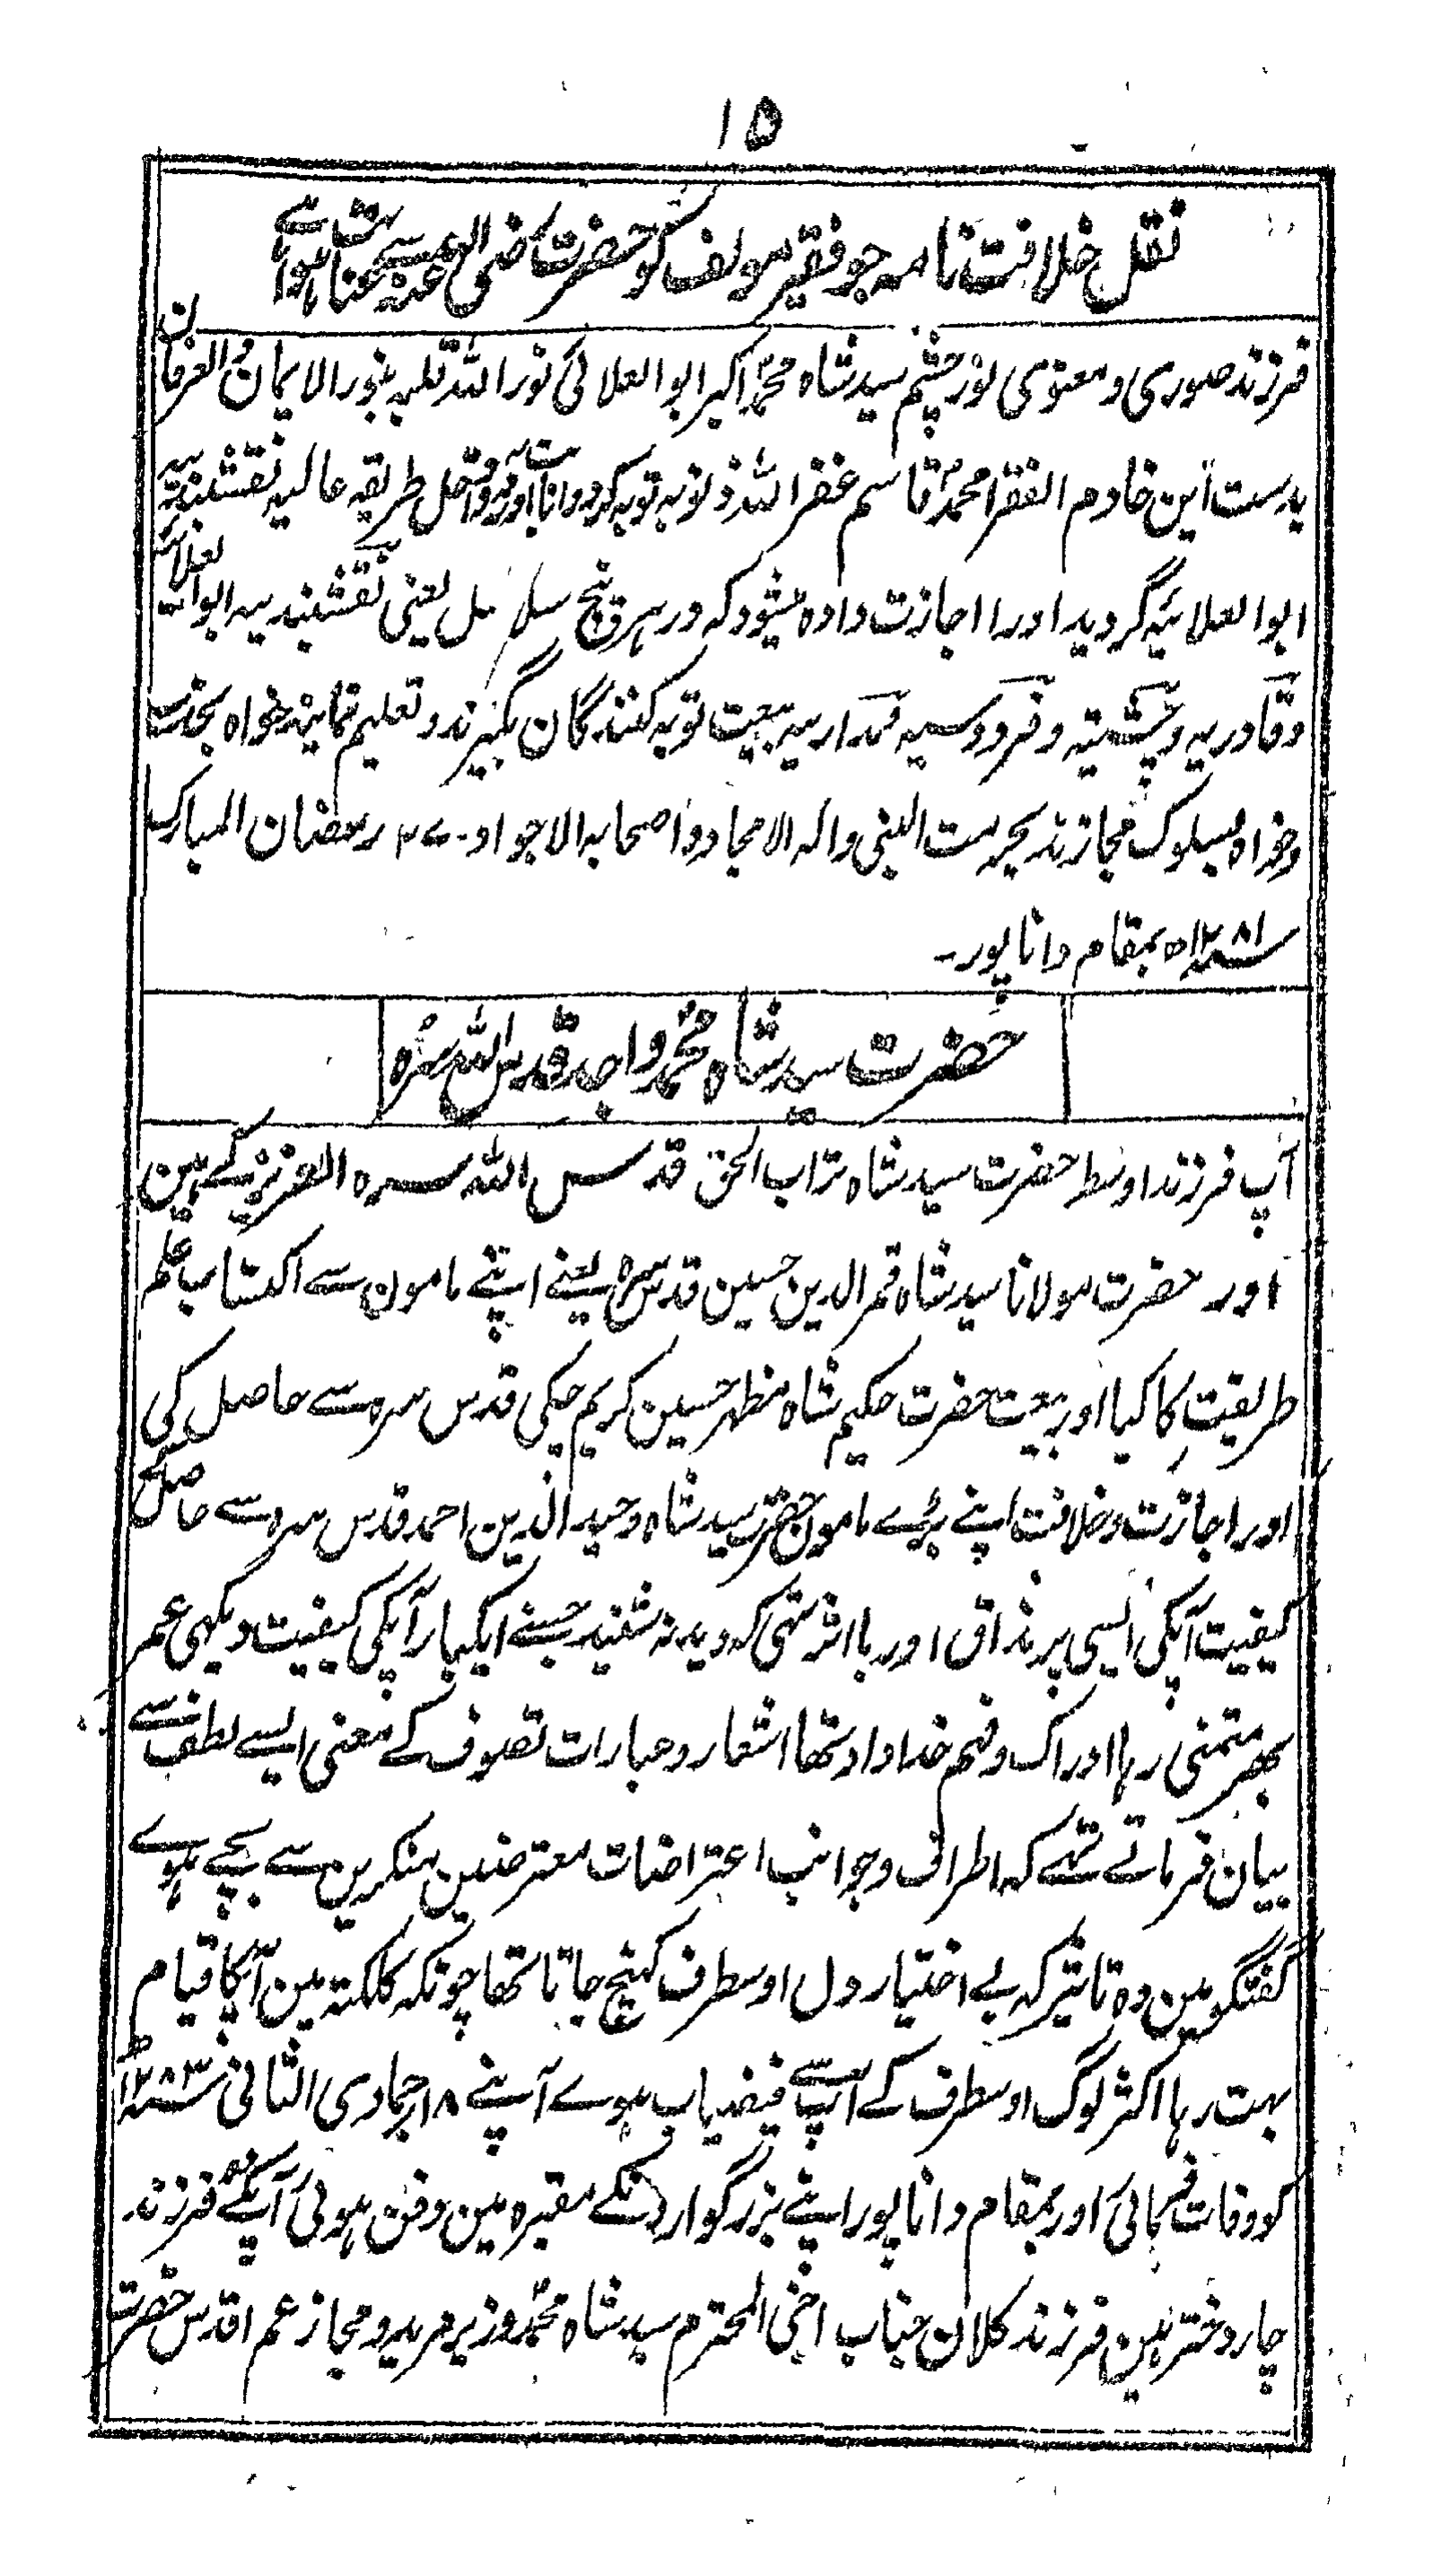 ۱۵
نقل خلافت نامہ جو فقیر مولف کو حضرت رضی اللہ عنہ سے عنایت ہوا ہے
فرزند صوری و معنوی نور چشم سید شاہ محمد اکبر ابو العلائی نور اللہ قلبہ بنور الایمان و العرفان
بدست این خادم الفقرا محمد قاسم غفر اللہ ذنوبہ توبہ کرد و انابت آورد و داخل طریقہ عالیہ نقشبندیہ
ابو العلائیہ گردید اورا اجازت دادہ میشود کہ در ہر پنج سلاسل یعنی نقشبندیہ ابو العلائیہ
و قادریہ و چشتیہ و فردوسیہ و مداریہ بیعت توبہ کنندگان بگیرند و تعلیم نمایند خواہ بجذب
و خواہ بسلوک مجازند بحرمت النبی والہ الامجاد و اصحابہ الاجواد۔ ۲۷ رمضان المبارک
سنہ ۱۲۸۱ھ بمقام داناپور۔
حضرت سید شاہ محمد واجد قدس اللہ سرہ
آپ فرزند اوسط حضرت سید شاہ تراب الحق قدس اللہ سرہ العزیز کے ہین
اور حضرت مولانا سید شاہ قمر الدین حسین قدس سرہ یعنے اپنے مامون سے اکتساب علم
طریقت کا کیا اور بیعت حضرت حکیم شاہ مظہر حسین کریم چکی قدس سرہ سے حاصل کی
اور اجازت و خلافت اپنے بڑے مامون حضرت سید شاہ وحید الدین احمد قدس سرہ سے حاصل کی
کیفیت آپکی ایسی پر مذاق اور با اثر تھی کہ دید نہ شنید جسنے ایکبار آپکی کیفیت دیکھی عمر
بھر متمنی رہا ادراک و فہم خداداد تھا اشعار و عبارات تصوف کے معنی ایسے لطف سے
بیان فرماتے تھے کہ اطراف و جوانب اعتراضات معترضین منکرین سے بچے ہوے
گفتگو مین وہ تاثیر کہ بے اختیار دل اوسطرف کہنچ جاتا تھا چونکہ کلکتہ مین آپکا قیام
بہت رہا اکثر لوگ اوسطرف کے آپ سے فیضیاب ہوے آپنے ۱۸ جمادی الثانی سنہ ۱۲۸۳ھ
کو وفات فرمائی اور بمقام داناپور اپنے بزرگوارونکے مقبرہ مین دفن ہوئی آپکے فرزند
چار دختر ہین فرزند کلان جناب اخی المحترم سید شاہ محمد وزیر مرید و مجاز عم اقدس حضرت